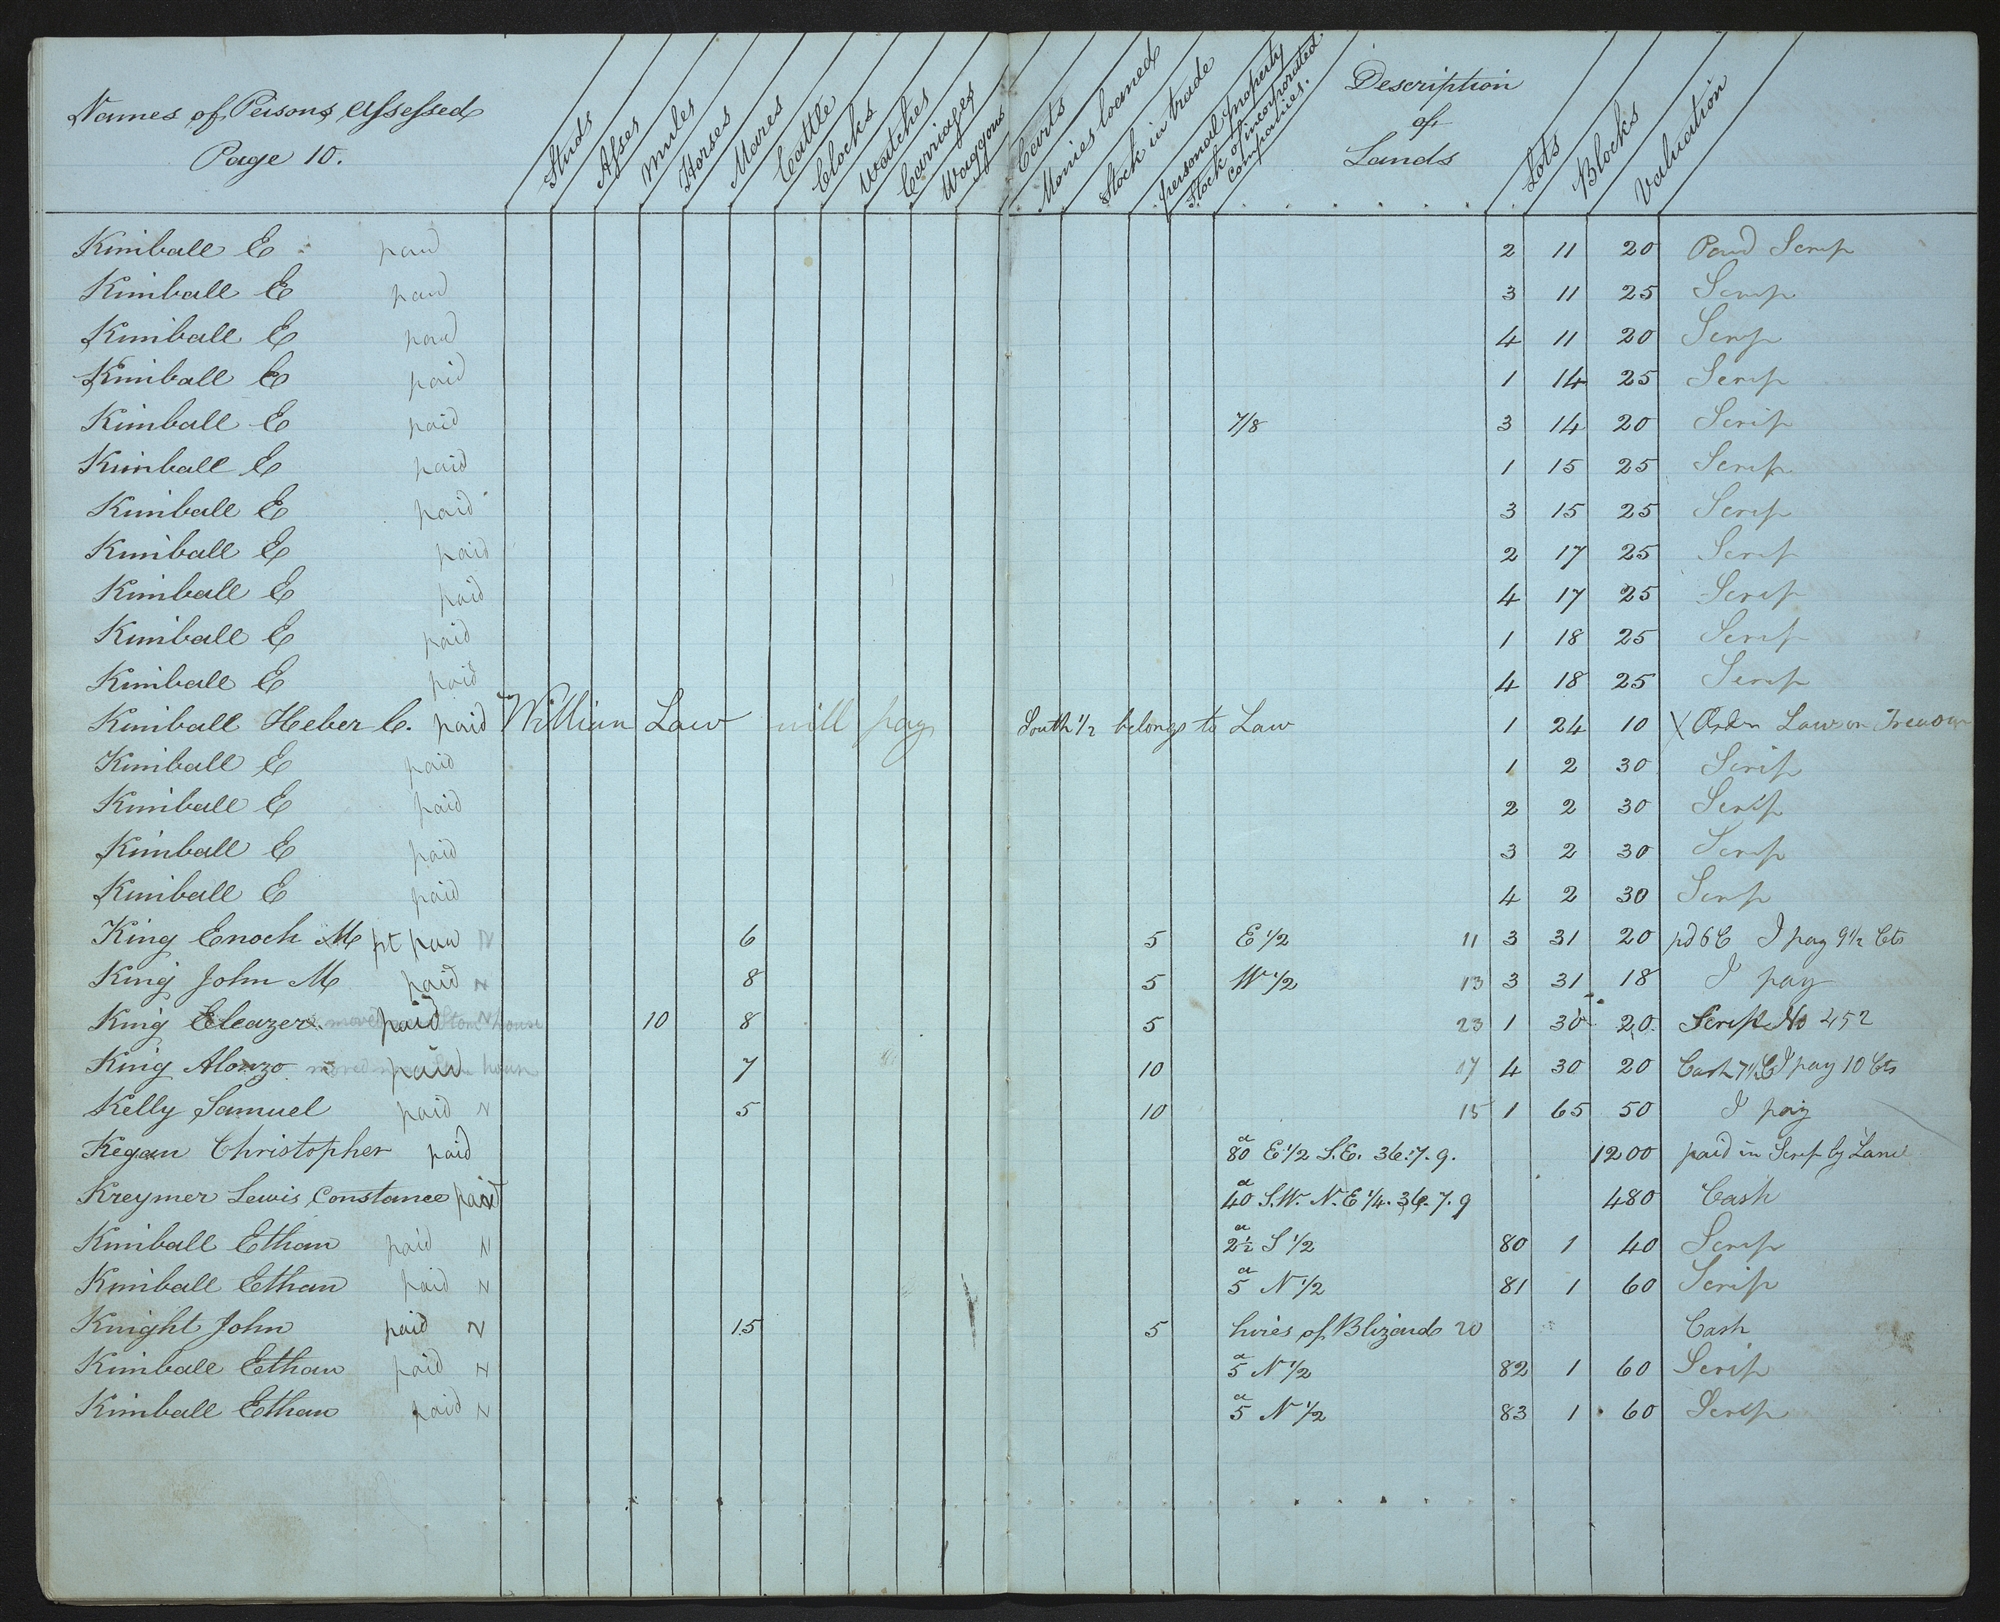 Names of Persons Assessed
Page 10.
Studs
Asses
Mules
Horses
Mares
Cattle
Clocks
Watches
Carriages
Waggons
Carts
Monies loaned
Stock in trade
personal property
Stock of incorporated companies.
Description
of
Lands
Lots
Blocks
Valuation
Kimball E paid 2 11 20 Paid Scrip
Kimball E paid 3 11 25 Scrip
Kimball E paid 4 11 20 Scrip
Kimball E paid 1 14 25 Scrip
Kimball E paid 7/8 3 14 20 Scrip
Kimball E paid 1 15 25 Scrip
Kimball E paid 3 15 25 Scrip
Kimball E paid 2 17 25 Scrip
Kimball E paid 4 17 25 Scrip
Kimball E paid 1 18 25 Scrip
Kimball E paid 4 18 25 Scrip
Kimball Heber C. paid William Law will pay South 1/2 belongs to Law 1 24 10 Order Law on
Kimball E paid 1 2 30 Scrip
Kimball E paid 2 2 30 Scrip
Kimball E paid 3 2 30 Scrip
Kimball E paid 4 2 30 Scrip
King Enoch M pt paid N 6 5 E 1/2 11 3 31 20 pd 6 C I pay 9 1/2 Cts
King John M paid N 8 5 W 1/2 13 3 31 18 I pay
King Eleazer moved paid N house 10 8 5 23 1 30 20 Scrip No 452
King Alonzo moved paid house 7 10 17 4 30 20 Cash I pay 10 Cts
Kelly Samuel paid N 5 10 15 1 65 50 I pay
Kegan Christopher paid 80 a E 1/2 S.E. 36.7.9. 1200 paid in Scrip by Land
Kreymer Lewis Constance paid 40 a S.W. N.E 1/4. 36.7.9 480 Cash
Kimball Ethan paid N 2 1/2 a S 1/2 80 1 40 Scrip
Kimball Ethan paid N 5 a N 1/2 81 1 60 Scrip
Knight John paid N 15 5 hires of Blizard 20 Cash
Kimball Ethan paid N 5 a N 1/2 82 1 60 Scrip
Kimball Ethan paid N 5 a N 1/2 83 1 60 Scrip